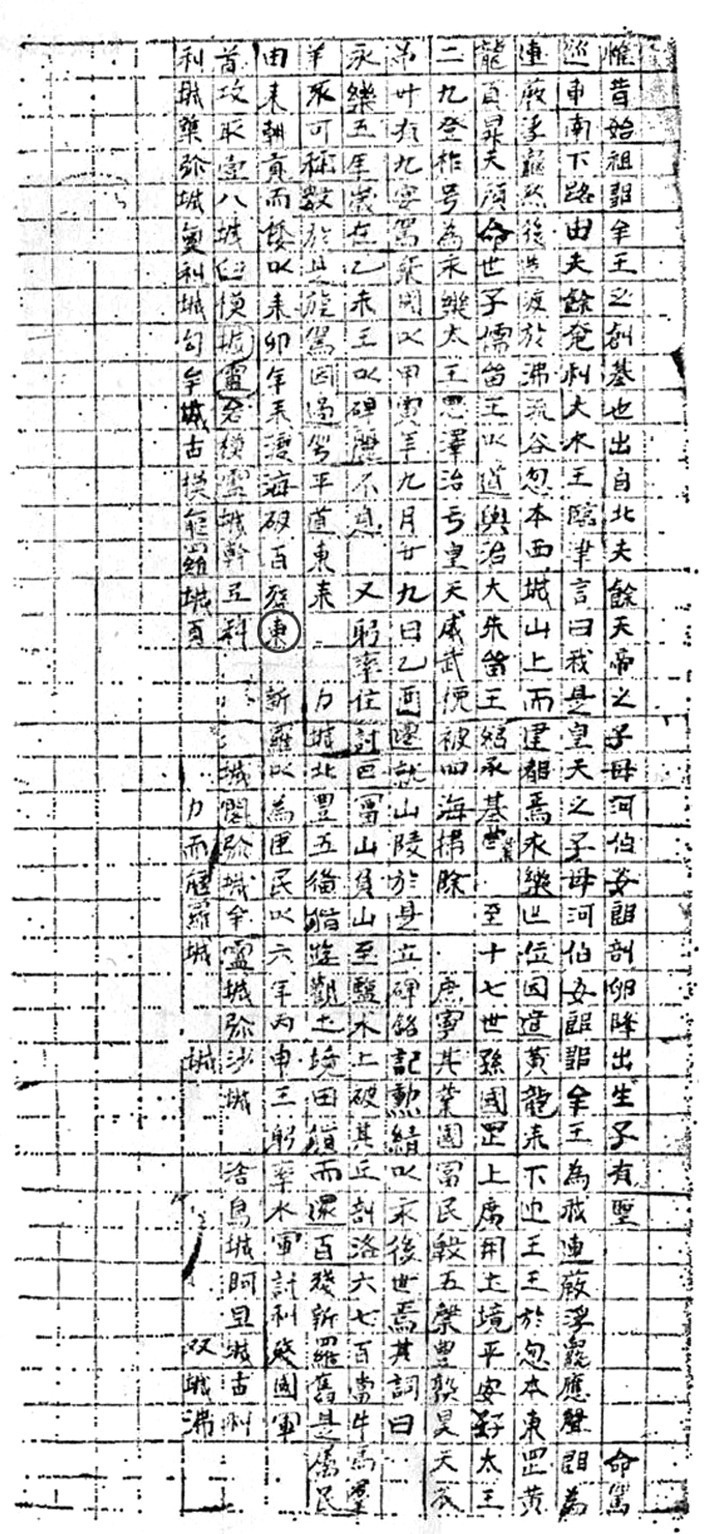 惟昔始祖鄒牟王之創基也出自北夫餘天帝之子母河伯女郎剖卵降出生子有聖 命駕
巡車南下路由夫餘奄利大水王臨津言曰我是皇天之子母河伯女郎鄒牟王為我連葭浮龜應聲即為
連葭浮龜然後造渡於沸流谷忽本西城山上而建都焉永樂世位因遣黃龍来下迎王王於忽本東罡黃
龍頁昇天顧命世子儒留王以道輿治大朱留王紹承基業 至十七世孫國罡上廣開土境平安好太王
二九登祚号為永樂太王恩澤洽亏皇天威武 被四海掃除 庶寧其業國富民殷五穀豊熟昊天不
弔卅有九宴駕棄國以甲寅年九月廿九日乙酉遷就山陵於是立碑銘記勳績以永後世焉其詞曰
永樂五年歲在乙未王以碑麗不息 又躬率住討叵富山負山至鹽水上破其丘部洛六七百當牛馬羣
羊不可稱數於是旋駕因過 平道東来 力城北豊五備猶遊觀土境田獵而還百殘新羅舊是屬民
由来朝貢而倭以来卯年来渡海破百殘東 新羅以為臣民以六年丙申王躬率水軍討利殘國軍
首攻取壹八城臼模城 各模盧城幹弖利 城閣弥城牟盧城弥沙城 舍蔦城阿旦城古利
利城 弥城奧利城勾牟城古模耶羅城頁 力而耶羅城 城 双城沸